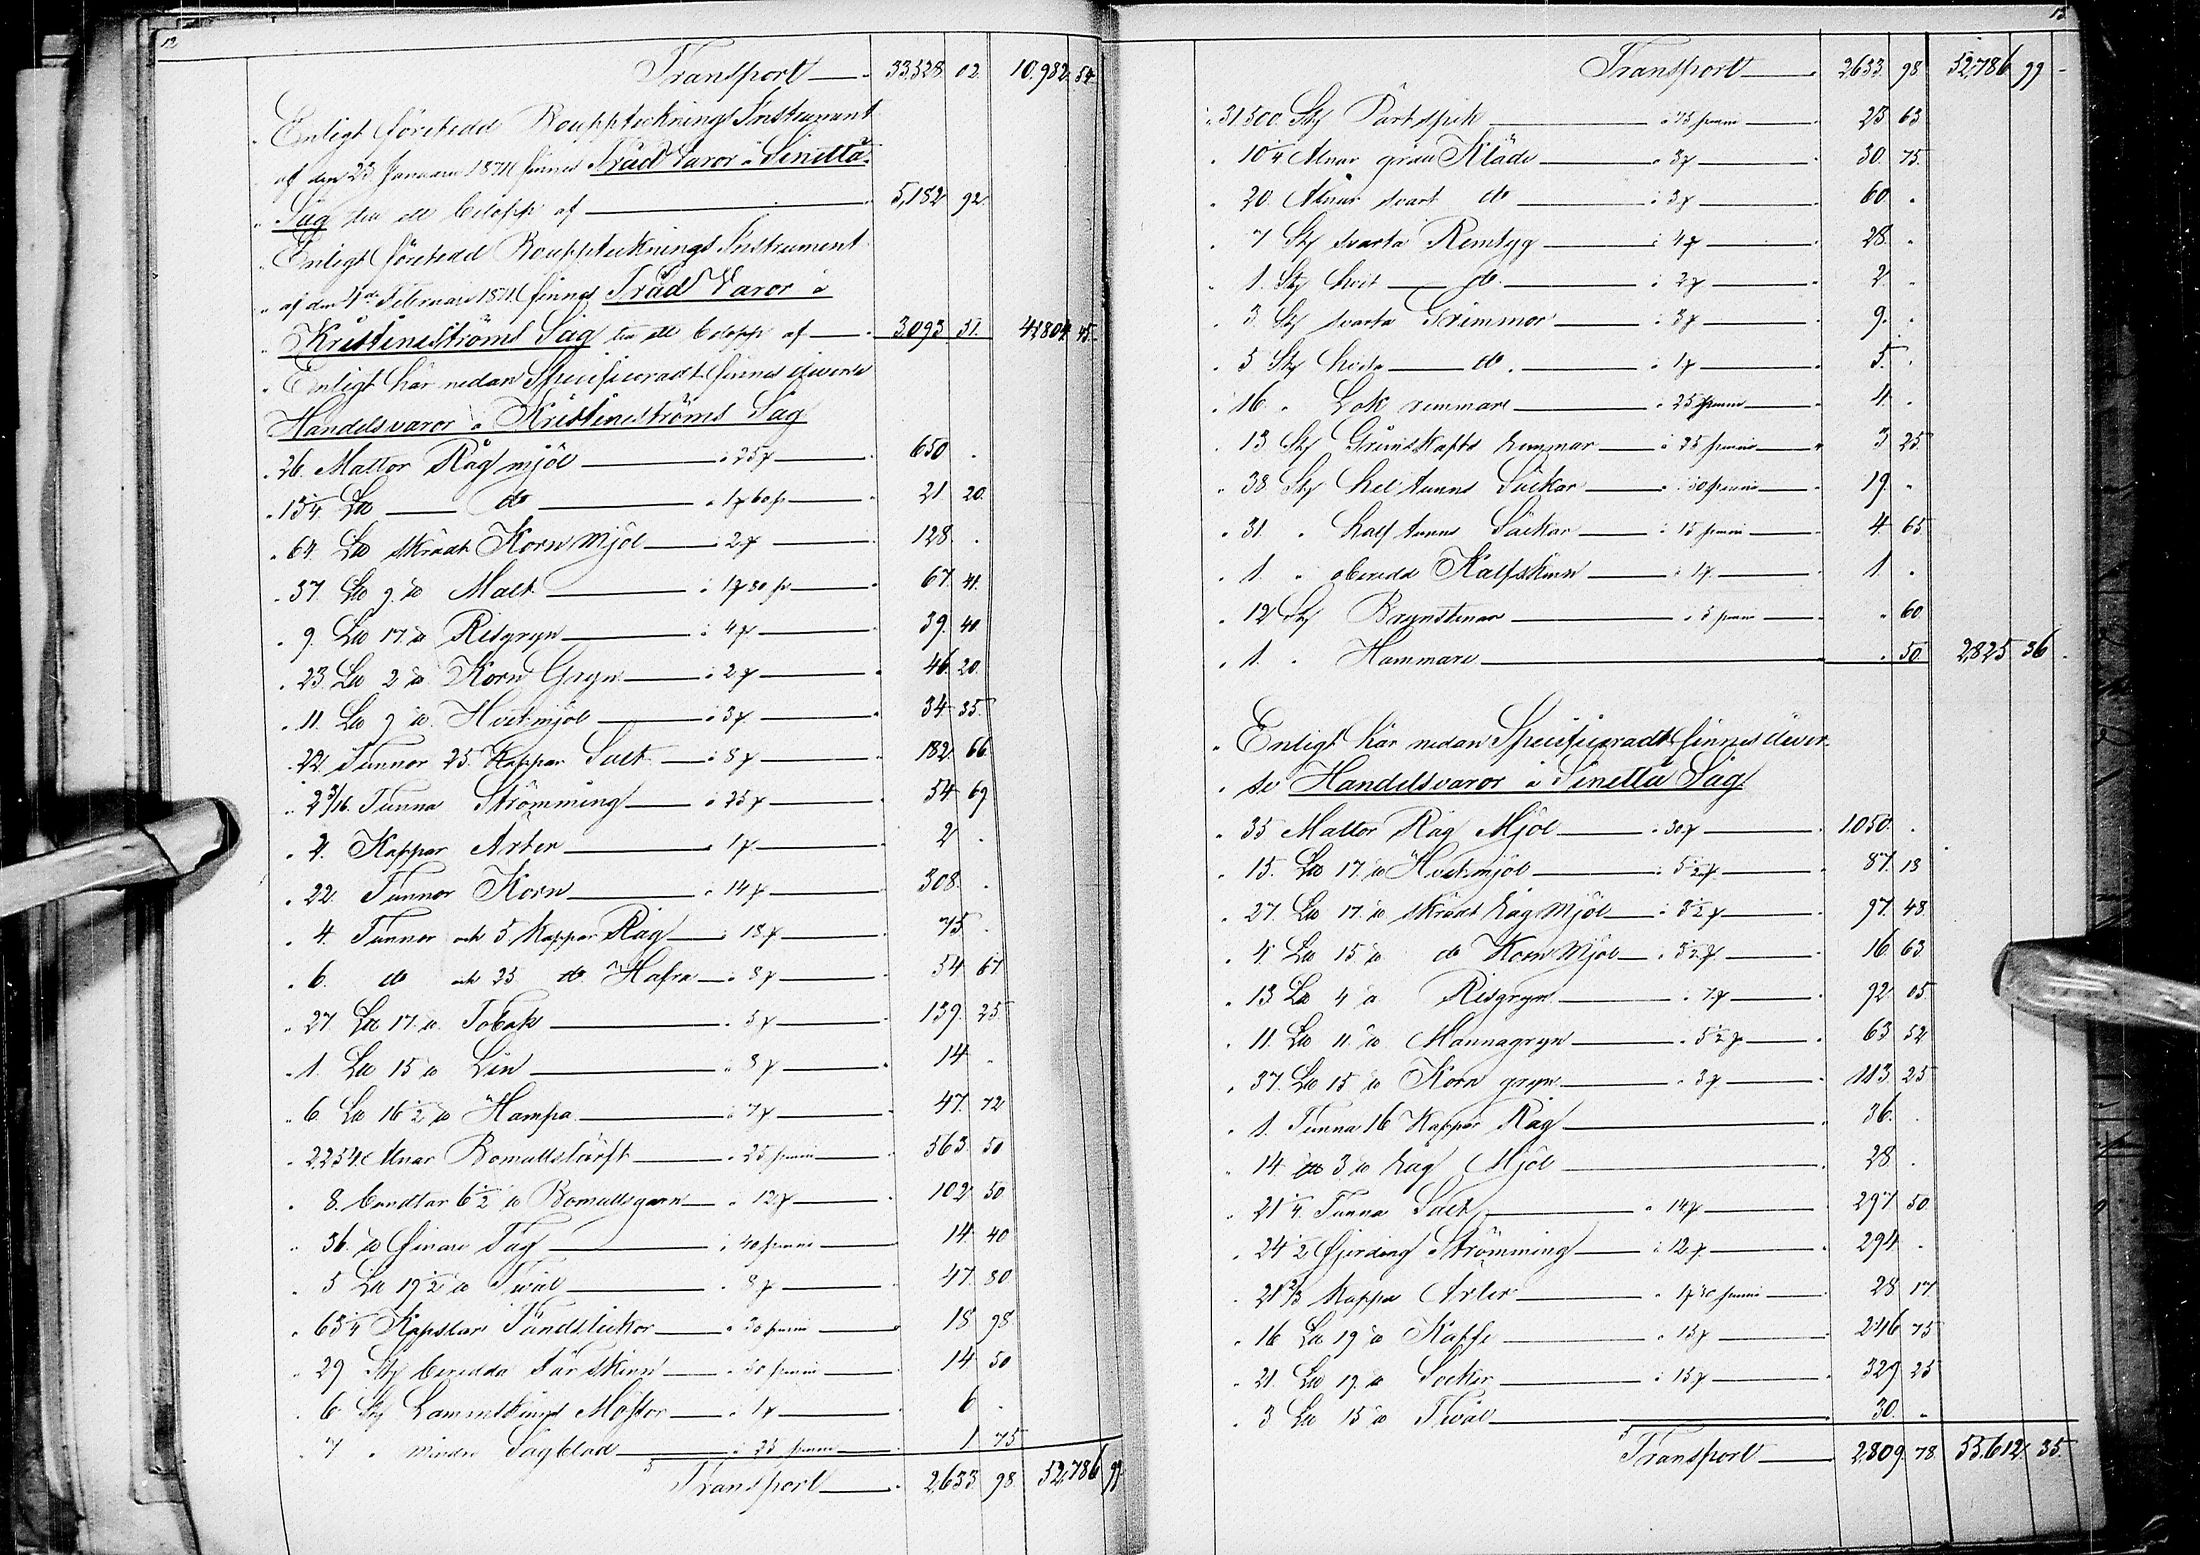 12
Transport 33,528. 02. 10,982 54
Enligt företedd Bouppteckning's Instrument
af den 23 Januari 1871 finnes Träd Varor å Sinettä
Såg till ett belopp af 5,182 92
Enligt företedd Bouppteckning's Instrument
af den 4de Februari 1871 finnes Träd Varor å
Kristineströms Såg till ett belopp af 3,093 51. 41,804. 45.
Enligt här nedan Specificeradt finnes diverse
Handelsvaror å Kristineströms Såg
26. Mattor Råg mjöl à 25 650 .
13 1/4 do à 1 60 p 21 20.
64. skrädt Korn Mjöl à 2 128 .
37. 9 Malt à 1 80 p 67. 41.
9. 17. Risgryn à 4 39. 40
23. 2 Korn Gryn à 2 46. 20.
11. 9 Hvetmjöl à 3 34 35.
22. Tunnor 25. Kappar Salt à 8 182. 66
2 3/16. Tunna Strömming à 25 54 69
2. Kappar Ärter 1 2 .
22. Tunnor Korn à 14 308. .
4. Tunnor och 5 Kappar Råg à 18 75 .
6. do och 25 do Hafra à 8 54 67
27 17. Tobak à 5 139. 25
1. 15 Lin à 8 14 .
6. 16 1/2 Hampa à 7 47. 72
2254. Alnar Bomullslärft à 25 penni 563. 50
8. bundtar 6 1/2 Bomullsgarn à 12 102 50
36. finare Tåg à 40 penni 14. 40
5 19 1/2 Twål à 8 47. 80
63 1/4 Tändstickor à 30 penni 18 98
29 Stÿ beredda Fårskinn à 50 penni 14 50
6 Stÿ Lammskinns Mössor à 1 6 .
7 " mindre Sågblad à 25 penni 1 75
Transport 2,633 98. 52,786 99
13
Transport 2633. 98 52,786 99
31.500 Stÿ Pärtspik à 75 penni 23 63
10 1/4 Alnar grått Kläde à 3 30. 75.
20. Alnar svart do à 3 60 .
7 Stÿ svarta Remtyg à 4 28. .
1. Stÿ hvit do à 2 2. .
3. Stÿ svarta Grimmor à 3 9. .
5 Stÿ hvita do à 1 5. .
16. " Lok remmare à 25 penni 4. .
13 Stÿ à 25 penni 3 25
38 Stÿ hel tunns Säckar à 50 penni 19. .
31. " half tunns Säckar à 15 penni 4. 65
1. " oberedd Kalfskinn à 1 1. .
12 Stÿ Brynstenar à 5 penni . 60
1. " Hammare . 50. 2,825 36
Enligt här nedan Specificeradt finnes diver-
se Handelsvaror å Sinettä Såg
35 Mattor Råg Mjöl à 30 1,050. .
15. 17. Hvetmjöl à 5 1/2 87. 13
27. 17. skrädt Råg Mjöl à 3 1/2 97. 48.
4. 15 do Korn Mjöl à 3 1/2 16 63.
13 4 Risgryn à 7 92 05
11. 11. Mannagryn à 5 1/2 63 52
37. 15 Korn gryn à 3 113. 25
1. Tunna 16 Kappar Råg 36. .
14 3 Råg Mjöl 28 .
21 1/4. Tunna Salt à 14 297 50.
24 1/2 Fjerding Strömming à 12 294. .
21 2/3 Kappar Ärter à 1 30 penni 28 17
16 19 Kaffe à 15 246 75
21. 19. Socker à 15 329. 25
3 15 Twål 30. .
Transport 2,809. 78 55,612. 35.